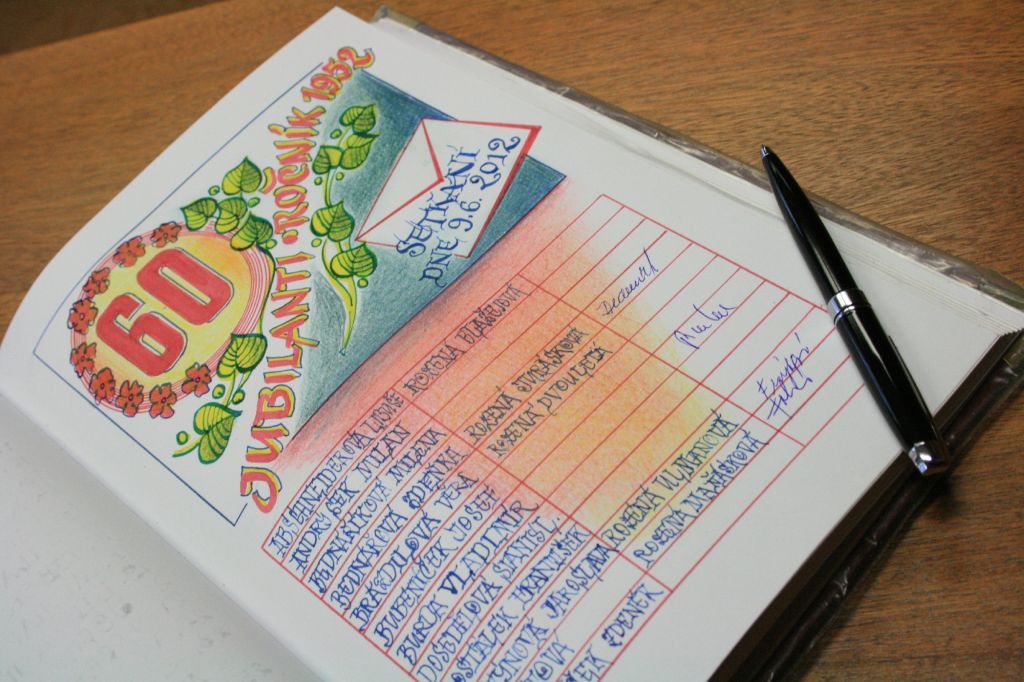 60
JUBILANTI • ROČNÍK 1952
SETKÁNÍ
DNE 9.6. 2012
ABSCHNEIDEROVÁ LIBUŠE ROZENÁ BLAŽEJOVÁ
ANDRÝSEK MILAN
BEDNAŘÍKOVÁ MILENA ROZENÁ JURÁSKOVÁ
BEDNÁŘOVÁ ZDEŇKA ROZENÁ DVOULETÁ
BRÁZDILOVÁ VĚRA
BUBENÍČEK JOSEF
BURDA VLADIMÍR
DOSEDĚLOVÁ
DOSTÁLEK FRANTIŠEK
JAROSLAVA ROZENÁ
ROZENÁ
ZDENĚK